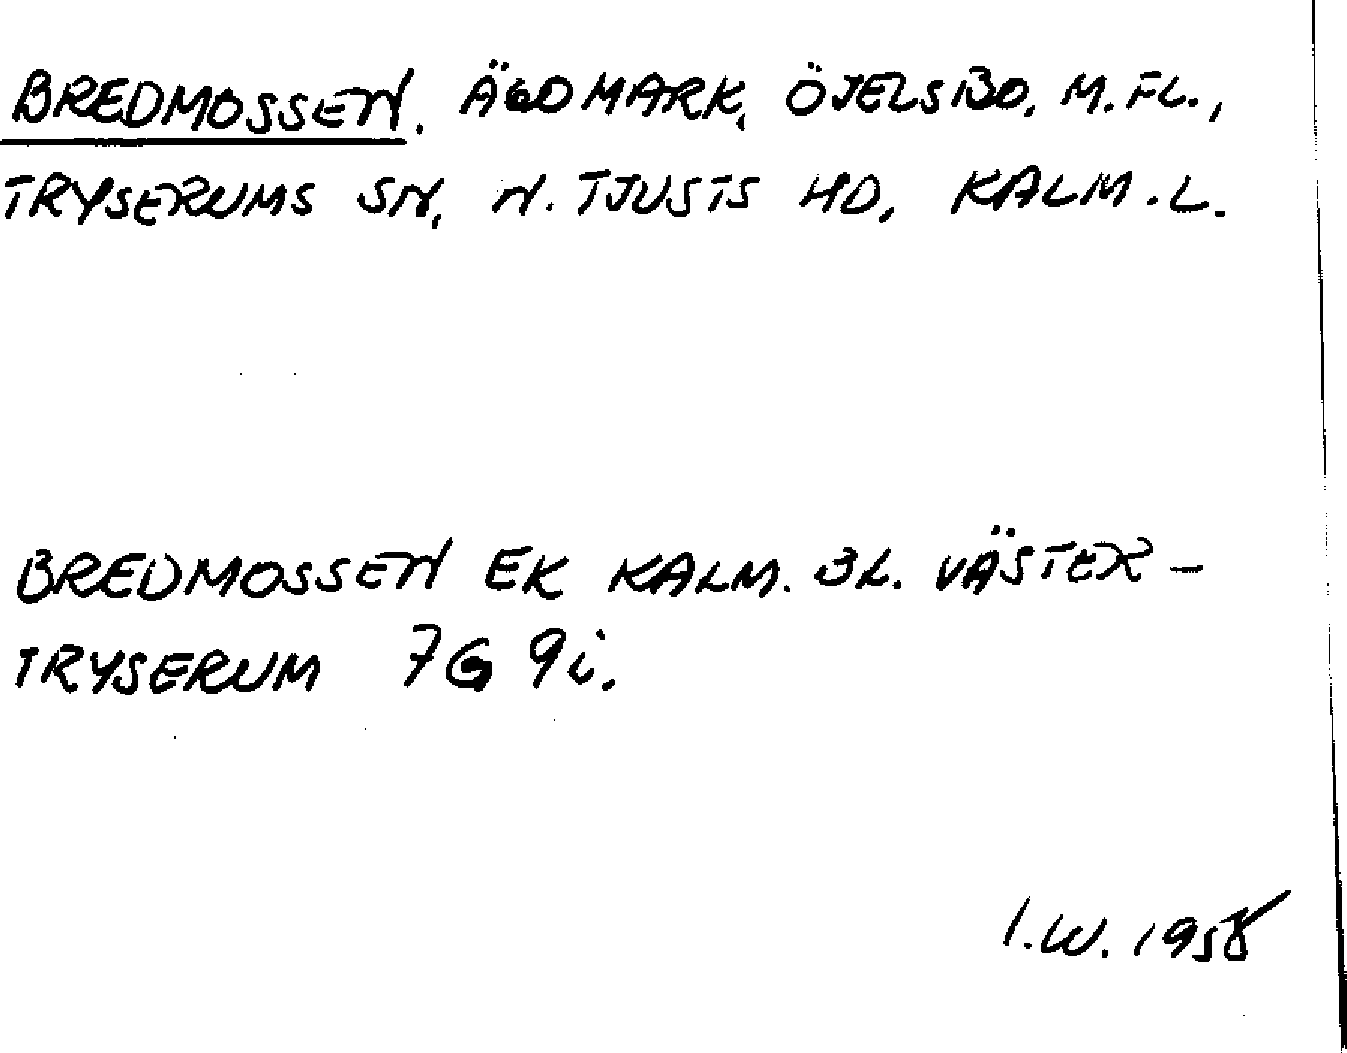 BREDMOSSEN. ÄGOMARK, ÖJELSBO, M.FL.,
TRYSERUMS SN, N. TJUSTS HD, KALM. L.
BREDMOSSEN EK KALM. BL. VÄSTER-
TRYSERUM 7G 9i.
I.W. 1958